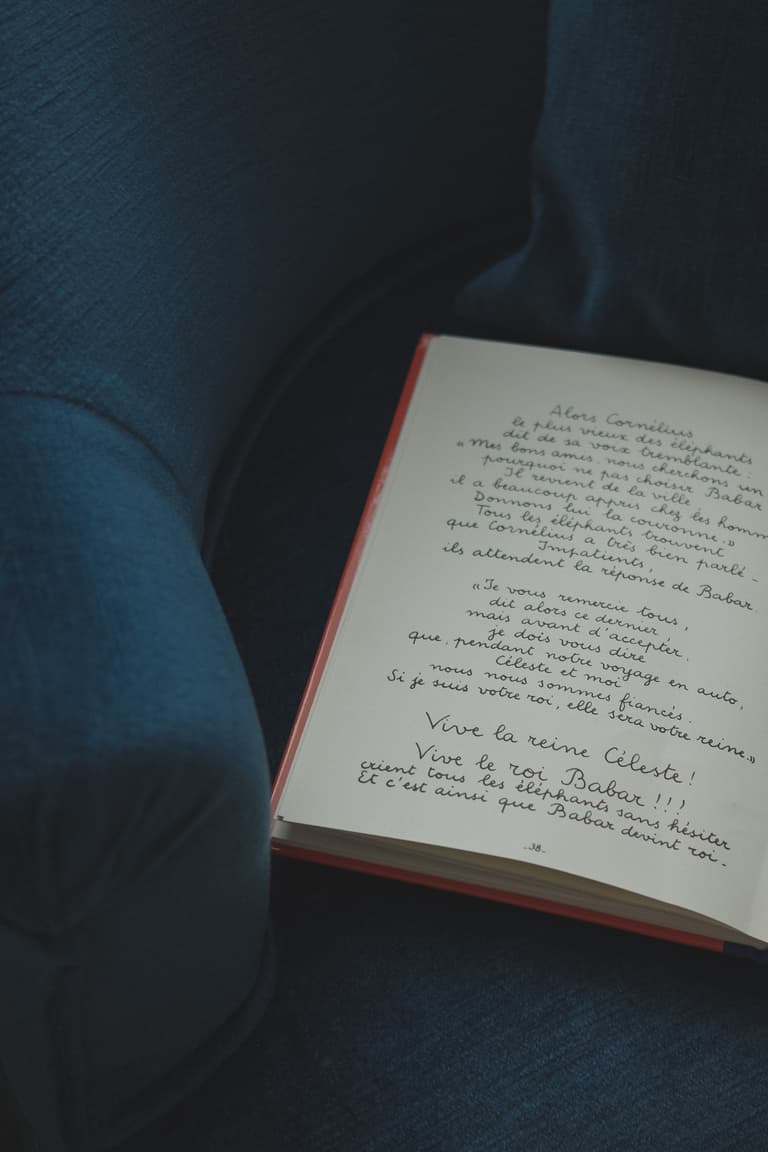 Alors Cornélius
le plus vieux des éléphants
dit de sa voix tremblante :
« Mes bons amis, nous cherchons un
pourquoi ne pas choisir Babar
Il revient de la ville,
il a beaucoup appris chez les homm
Donnons lui la couronne. »
Tous les éléphants trouvent
que Cornélius a très bien parlé -
Impatients,
ils attendent la réponse de Babar.
« Je vous remercie tous,
dit alors ce dernier,
mais avant d'accepter,
je dois vous dire
que, pendant notre voyage en auto,
Céleste et moi
nous nous sommes fiancés.
Si je suis votre roi, elle sera votre reine. »
Vive la reine Céleste !
Vive le roi Babar !!!
crient tous les éléphants sans hésiter
Et c'est ainsi que Babar devint roi -
-38-